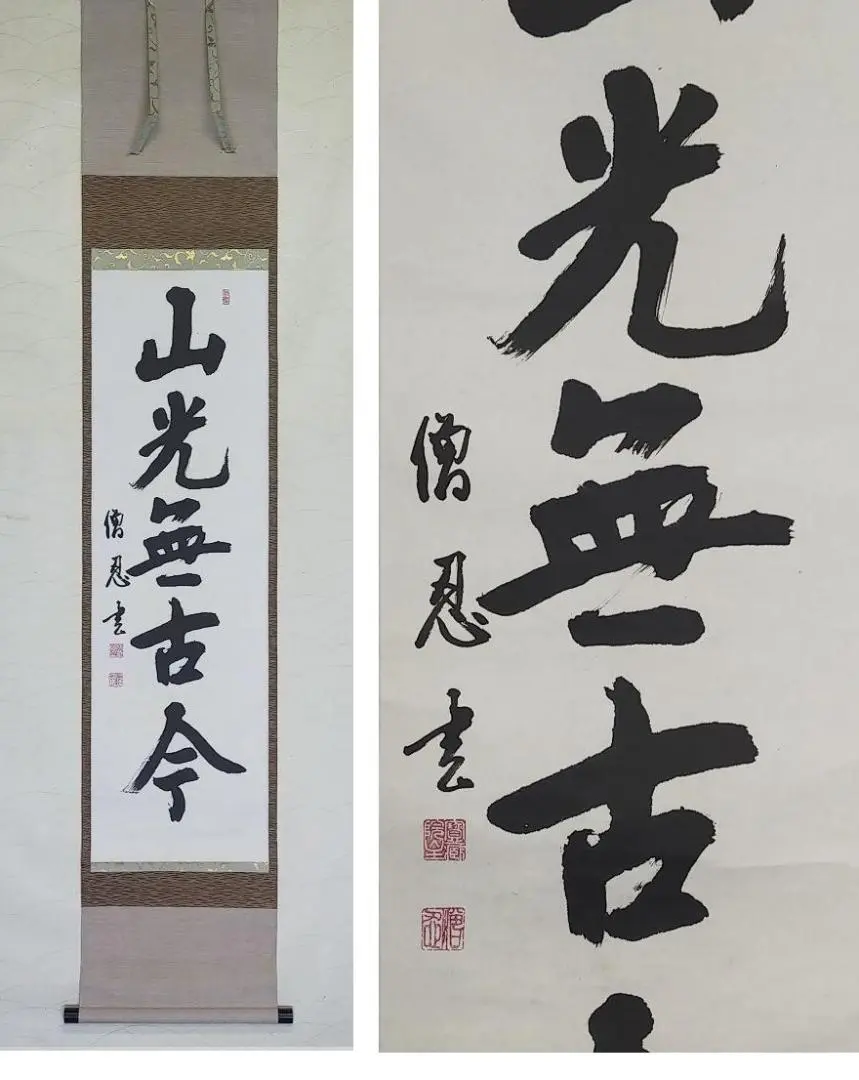 山光無古今
僧忍書
光無古
僧忍書